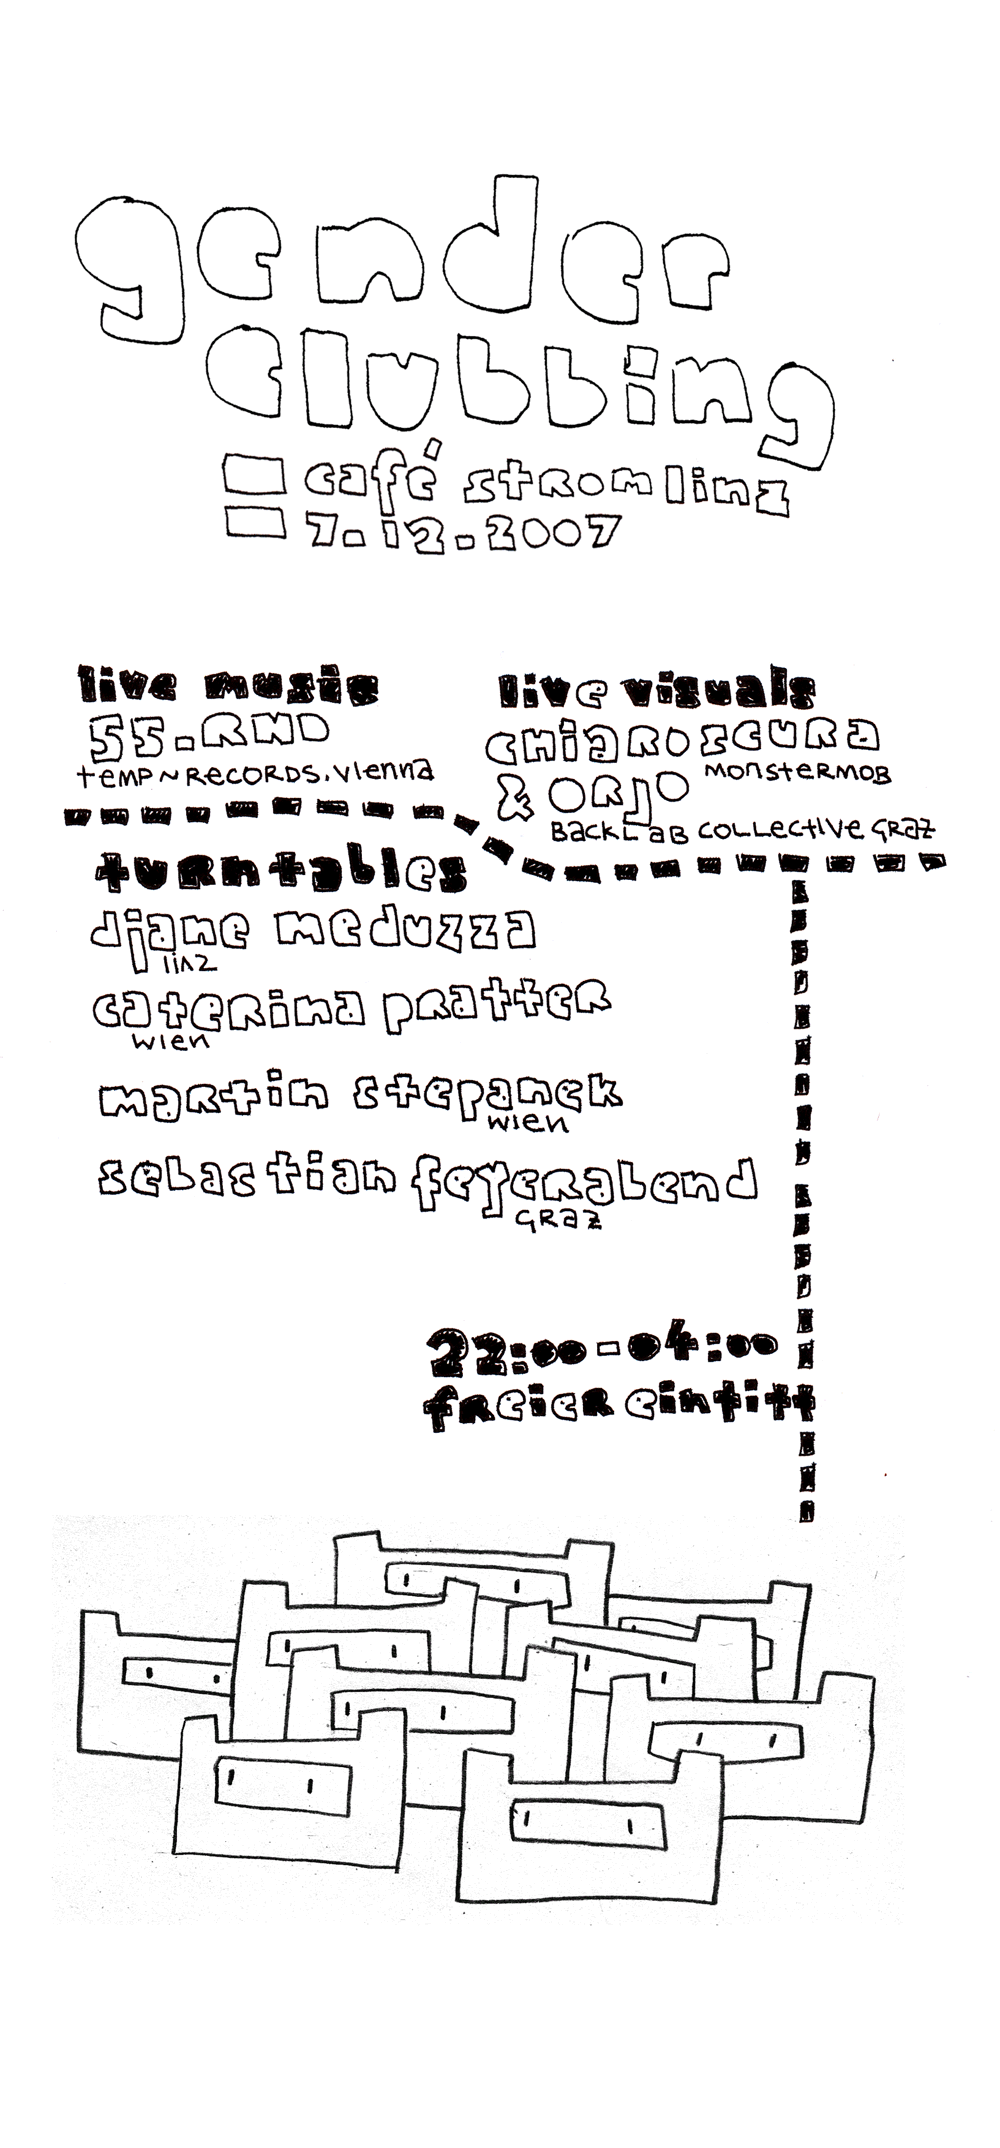 gender
clubbing
café strom linz
7.12.2007
live music
55.RND
temp~records.vienna
live visuals
chiaroscura
monstermob
& orjo
backlab collective graz
turntables
djane meduzza
linz
caterina pratter
wien
martin stepanek
wien
sebastian feyerabend
graz
22:00-04:00
freier eintitt